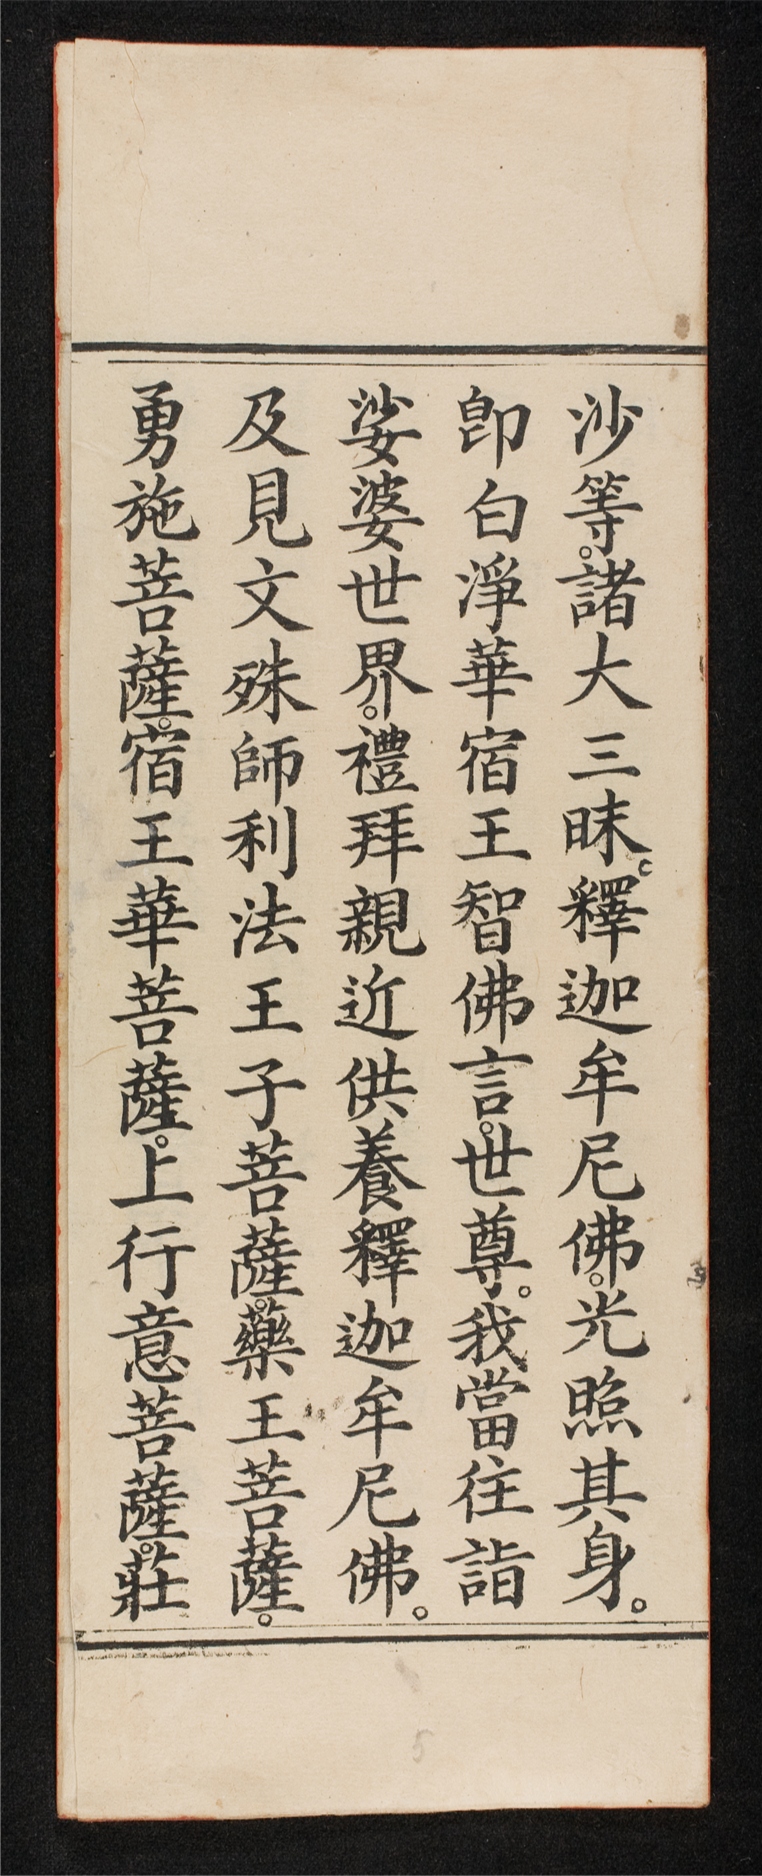 沙等。諸大三昧。釋迦牟尼佛。光照其身。
卽白淨華宿王智佛言。世尊。我當往詣
娑婆世界。禮拜親近供養釋迦牟尼佛。
及見文殊師利法王子菩薩。藥王菩薩。
勇施菩薩。宿王華菩薩。上行意菩薩。莊
5